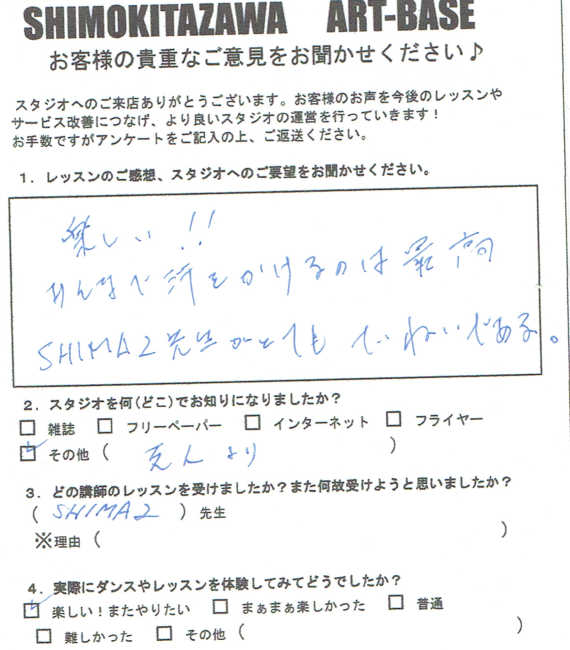 SHIMOKITAZAWA ART-BASE
お客様の貴重なご意見をお聞かせください♪
スタジオへのご来店ありがとうございます。お客様のお声を今後のレッスンや
サービス改善につなげ、より良いスタジオの運営を行っていきます!
お手数ですがアンケートをご記入の上、ご返送ください。
1. レッスンのご感想、スタジオへのご要望をお聞かせください。
楽しい!!
みんなで汗をかけるのは最高
SHIMA2先生がとても ていねいである。
2. スタジオを何(どこ)でお知りになりましたか?
☐ 雑誌 ☐ フリーペーパー ☐ インターネット ☐ フライヤー
☑ その他 ( 友人より )
3. どの講師のレッスンを受けましたか?また何故受けようと思いましたか?
( SHIMA2 ) 先生
※理由 ( )
4. 実際にダンスやレッスンを体験してみてどうでしたか?
☑ 楽しい!またやりたい ☐ まぁまぁ楽しかった ☐ 普通
☐ 難しかった ☐ その他 ( )